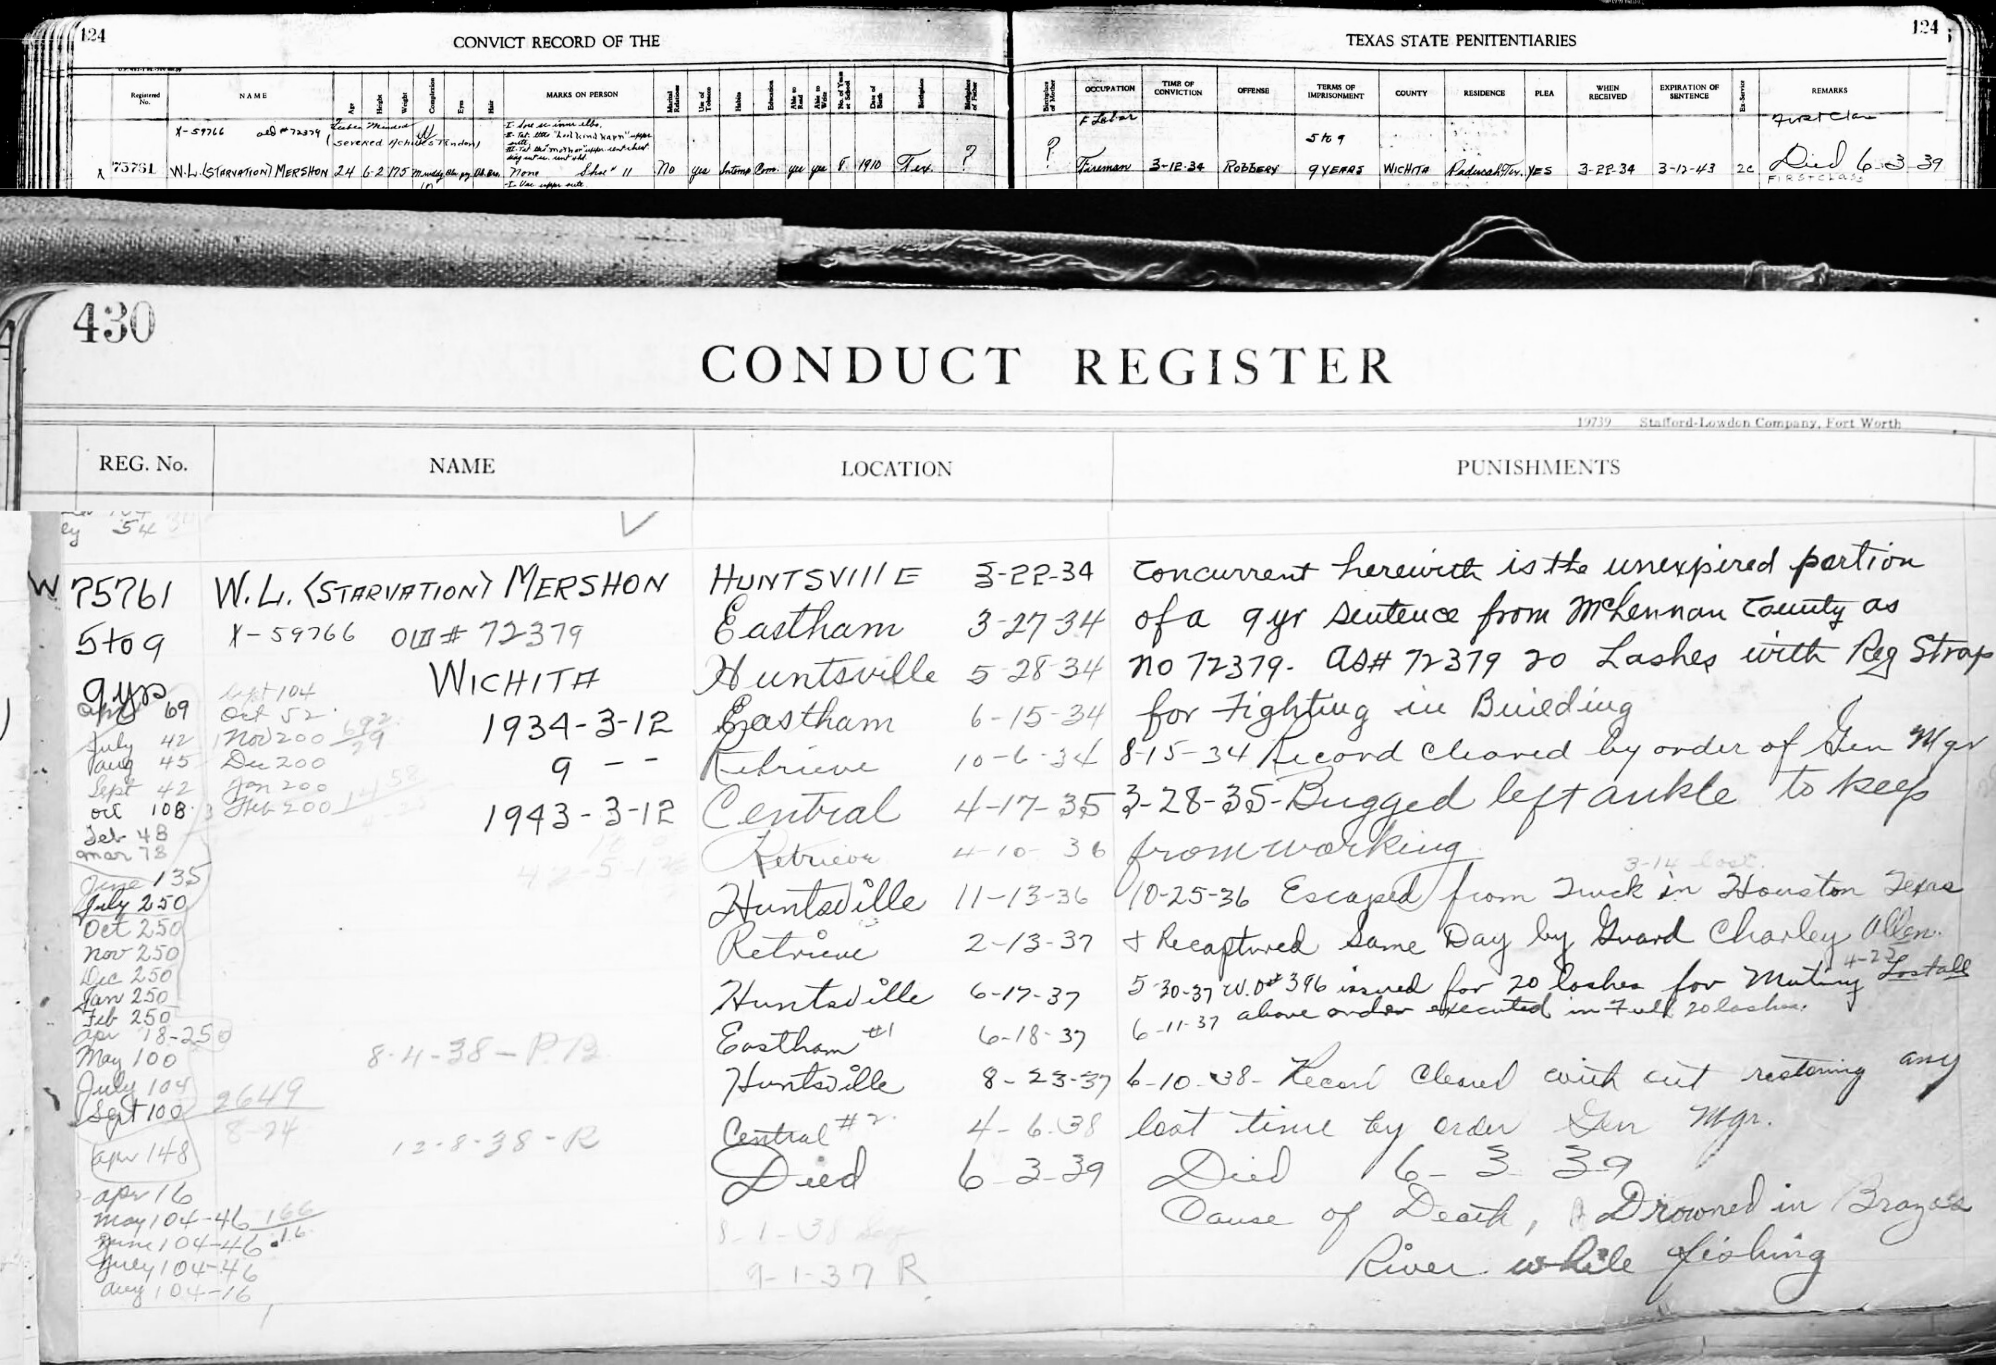 124
CONVICT RECORD OF THE
TEXAS STATE PENITENTIARIES
124
Registered No.
NAME
Age
Height
Weight
Complexion
Eyes
Hair
MARKS ON PERSON
Marital Relations
Use of Tobacco
Habits
Education
Able to Read
Able to Write
No. of Years at School
Date of Birth
Birthplace
Birthplace of Father
Birthplace of Mother
OCCUPATION
TIME OF CONVICTION
OFFENSE
TERMS OF IMPRISONMENT
COUNTY
RESIDENCE
PLEA
WHEN RECEIVED
EXPIRATION OF SENTENCE
Ex-Service
REMARKS
X-59766 old #72379
(Severed Achilles Tendon)
F Labor
5 to 9
First Class
X 75761 W.L. (STARVATION) MERSHON 24 6-2 175 None Shoe # 11 No yes Intemp Com. yes yes 8 1910 Tex. ? ? Fireman 3-12-34 ROBBERY 9 YEARS WICHITA Paducah Tex. YES 3-22-34 3-12-43 2C Died 6-3-39
FIRST CLASS
430
CONDUCT REGISTER
19739 Stafford-Lowdon Company, Fort Worth
REG. No.
NAME
LOCATION
PUNISHMENTS
54
W 75761 W.L. (STARVATION) MERSHON
5 to 9 X-59766 Old # 72379
9 yrs WICHITA
1934-3-12
9 - -
1943-3-12
69
July 42
Aug 45
Sept 42
Oct 108
Feb 48
Mar 78
June 135
July 250
Oct 250
Nov 250
Dec 250
Jan 250
Feb 250
Apr 18-250
May 100
July 104
Sept 100
Apr 148
Apr 16
May 104-46
June 104-46
July 104-46
Aug 104-16
Sept 104
Oct 52
Nov 200
Dec 200
Jan 200
Feb 200
2649
8-24
166
16
8-4-38-P.B.
12-8-38-R
HUNTSVILLE 3-22-34
Eastham 3-27-34
Huntsville 5-28-34
Eastham 6-15-34
Retrieve 10-6-34
Central 4-17-35
Retrieve 4-10-36
Huntsville 11-13-36
Retrieve 2-13-37
Huntsville 6-17-37
Eastham #1 6-18-37
Huntsville 8-23-37
Central #2 4-6-38
Died 6-3-39
8-1-38
9-1-37 R
Concurrent herewith is the unexpired portion
of a 9 yr sentence from McLennan County as
no 72379. As # 72379 20 Lashes with Reg Strap
for Fighting in Building
8-15-34 Record Cleared by order of Gen Mgr
3-28-35-Bugged left ankle to keep
from working
3-14 lost.
10-25-36 Escaped from Truck in Houston Texas
& Recaptured Same Day by Guard Charley Allen.
5-30-37 W.O# 396 issued for 20 lashes for Mutiny 4-25 Lost all
6-11-37 above order executed in Full 20 lashes.
6-10-38- Record Cleared with out restoring any
lost time by order Gen Mgr.
Died 6-3 39
Cause of Death, Drowned in Brazos
River while fishing